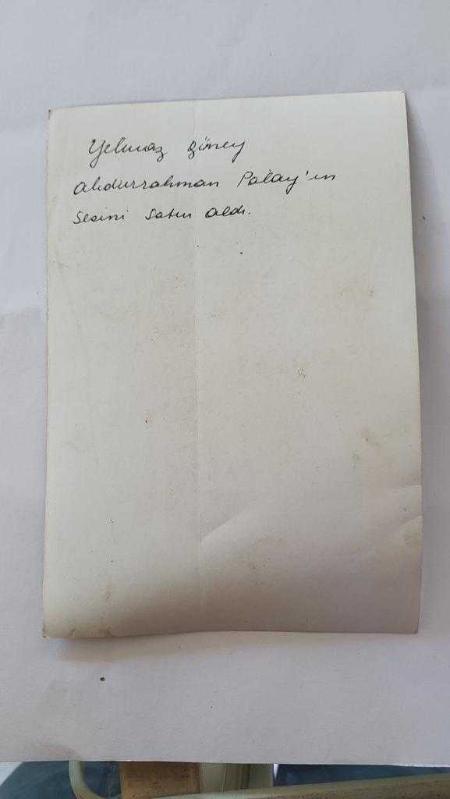 Yılmaz Güney
Abdurrahman Palay'ın
Sesini Satın aldı.